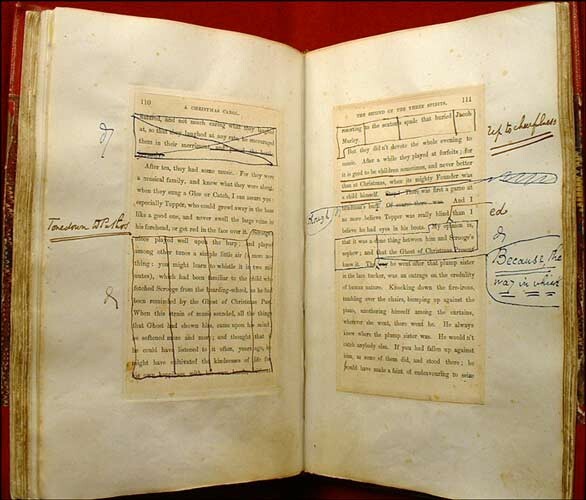 110
A CHRISTMAS CAROL.
and not much caring what they
at, so that they laughed at any rate, he encouraged
them in their merriment,
After tea, they had some music. For they were
a musical family, and knew what they were about,
when they sung a Glee or Catch, I can assure you:
especially Topper, who could growl away in the bass
like a good one, and never swell the large veins in
his forehead, or get red in the face over it. Scrooge's
niece played well upon the harp; and played
among other tunes a simple little air (a mere no-
thing: you might learn to whistle it in two mi-
nutes), which had been familiar to the child who
fetched Scrooge from the boarding-school, as he had
been reminded by the Ghost of Christmas Past.
When this strain of music sounded, all the things
that Ghost had shown him, came upon his mind;
he softened more and more; and thought that if
he could have listened to it often, years ago, he
might have cultivated the kindnesses of life for
Tone down to
111
THE SECOND OF THE THREE SPIRITS.
resorting to the sexton's spade that buried Jacob
Marley.
But they didn't devote the whole evening to
music. After a while they played at forfeits; for
it is good to be children sometimes, and never better
than at Christmas, when its mighty Founder was
a child himself. There was first a game at
blindman's buff. Of course there was. And I
no more believe Topper was really blind than I
believe he had eyes in his boots. My opinion is,
that it was a done thing between him and Scrooge's
nephew; and that the Ghost of Christmas Present
knew it. The way he went after that plump sister
in the lace tucker, was an outrage on the credulity
of human nature. Knocking down the fire-irons,
tumbling over the chairs, bumping up against the
piano, smothering himself among the curtains,
wherever she went, there went he. He always
knew where the plump sister was. He wouldn't
catch anybody else. If you had fallen up against
him, as some of them did, and stood there; he
would have made a feint of endeavouring to seize
Up to cheerfulness
though
ed
Because, the
way in which